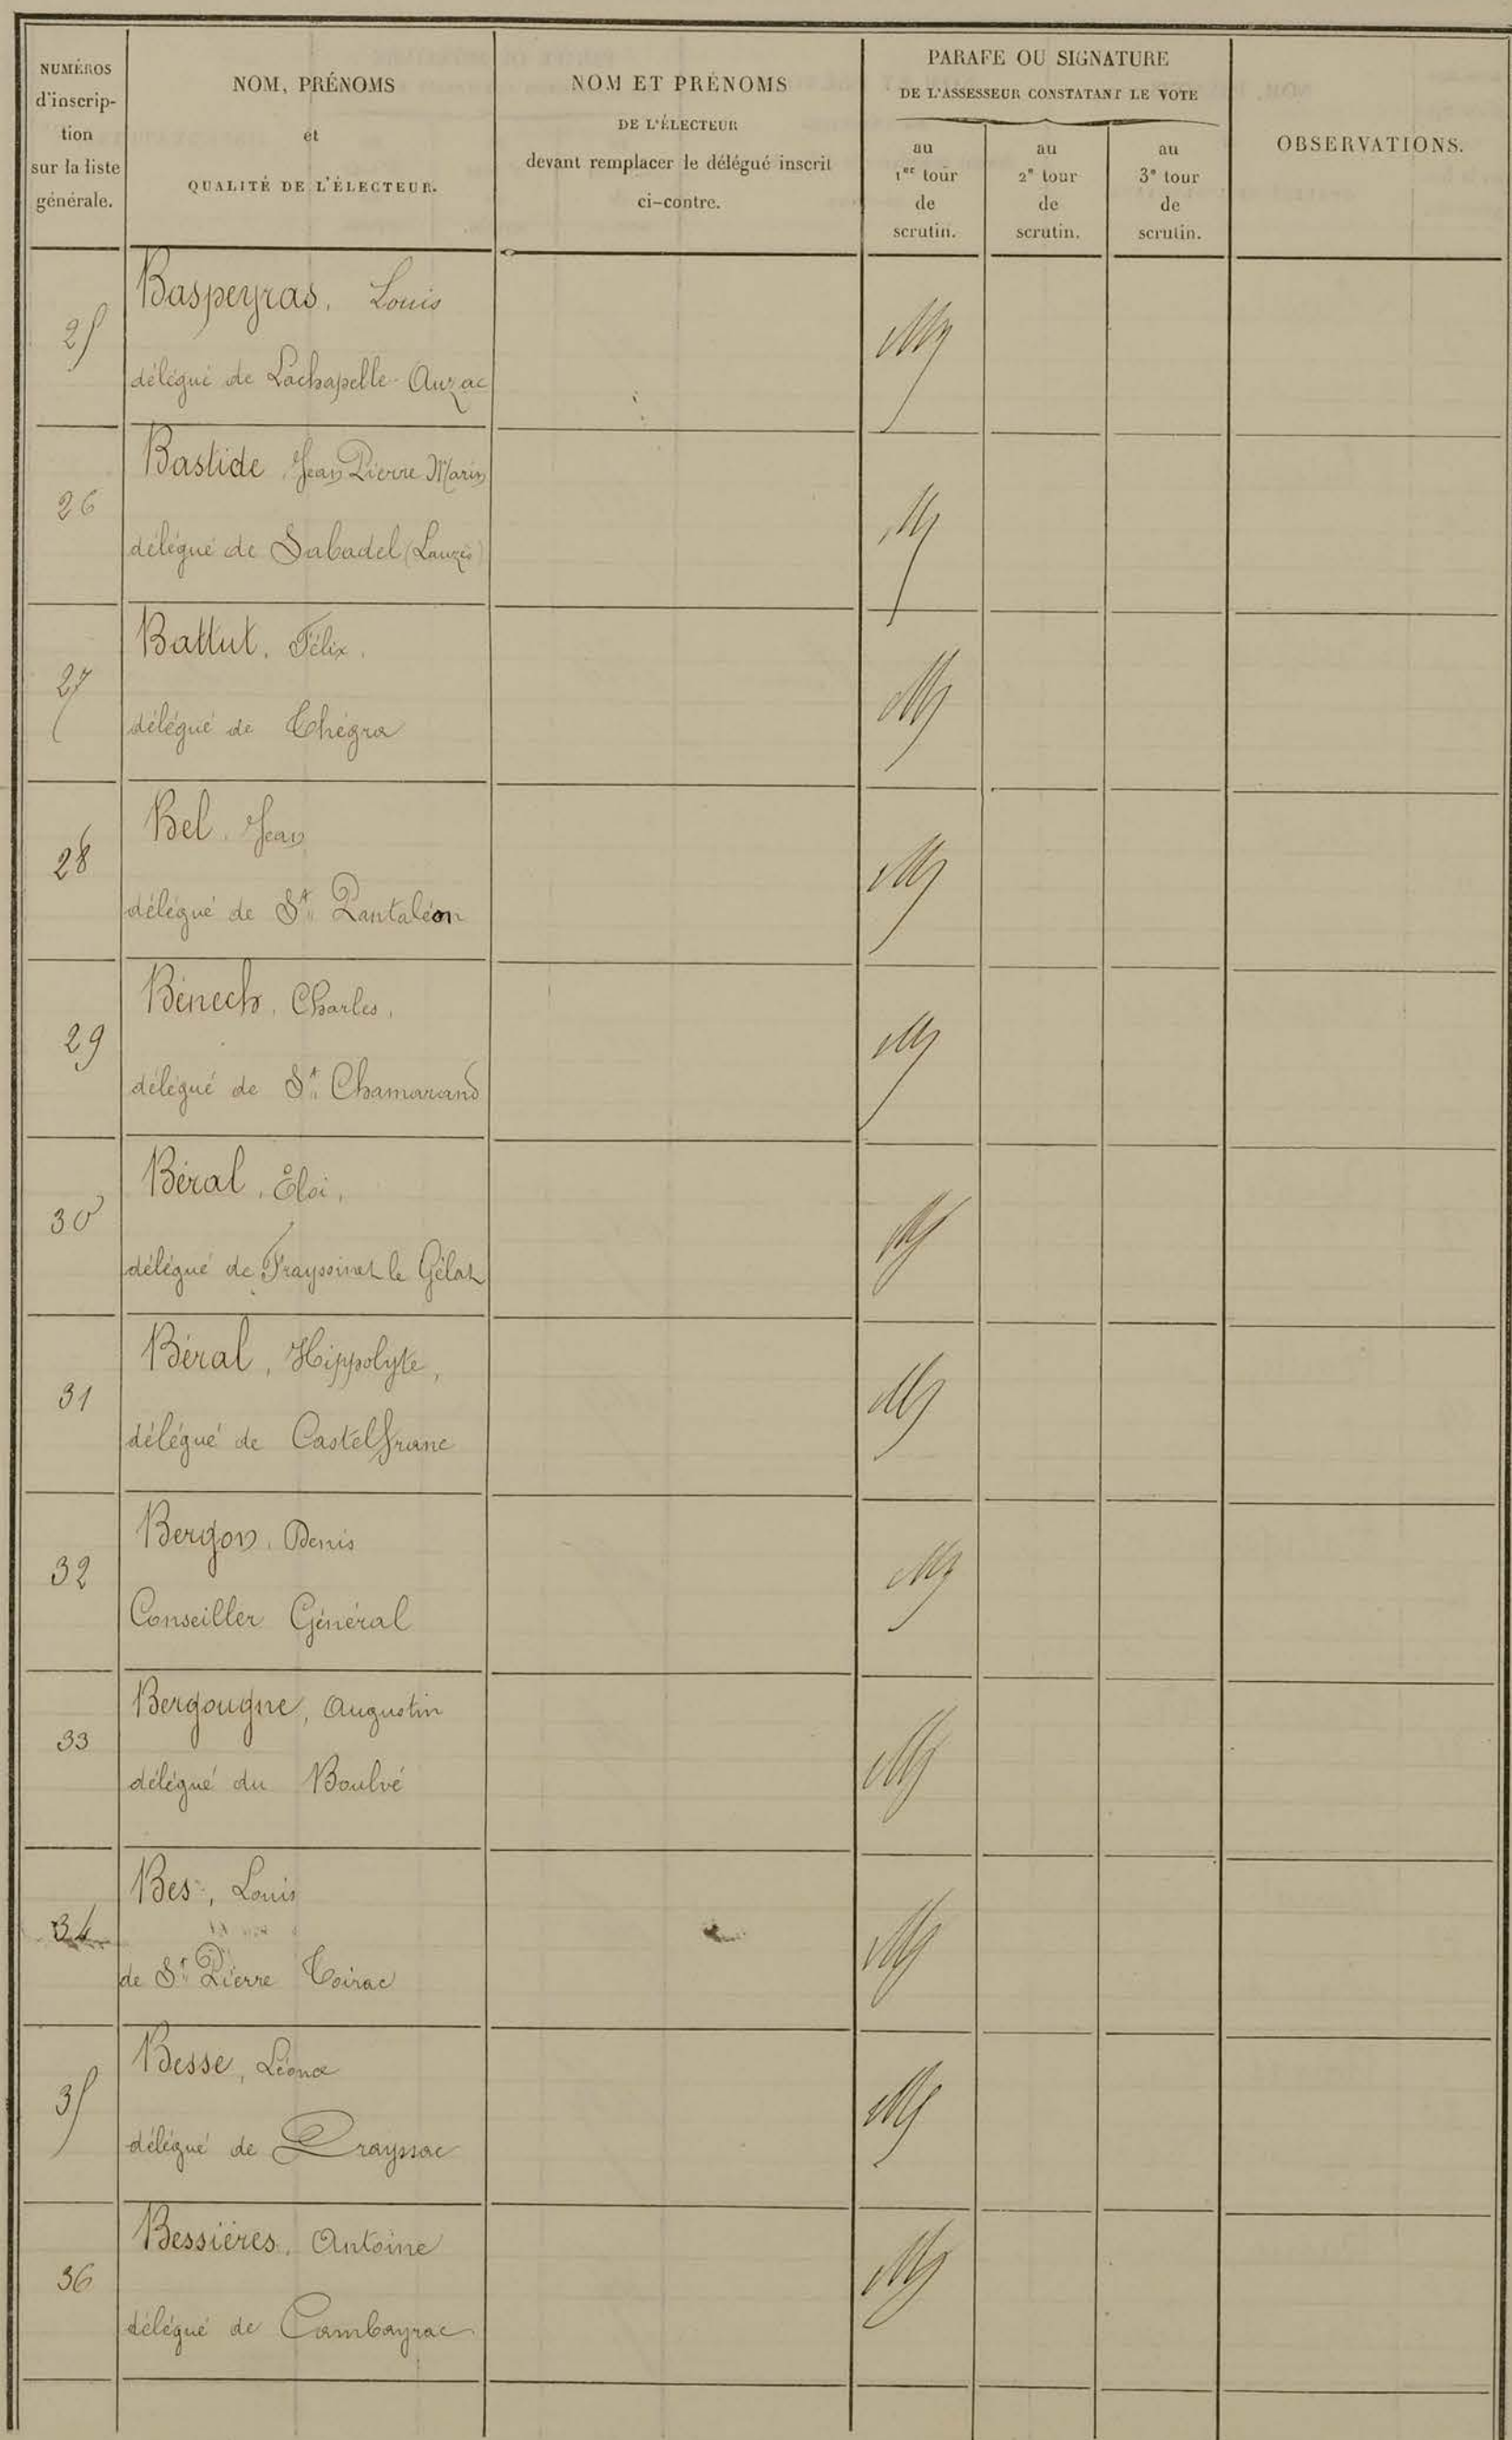 NUMÉROS
d'inscrip-
tion
sur la liste
générale.
NOM, PRÉNOMS
et
QUALITÉ DE L'ÉLECTEUR.
NOM ET PRÉNOMS
DE L'ÉLECTEUR
devant remplacer le délégué inscrit
ci-contre.
PARAFE OU SIGNATURE
DE L'ASSESSEUR CONSTATANT LE VOTE
au
1er tour
de
scrutin.
au
2e tour
de
scrutin.
au
3e tour
de
scrutin.
OBSERVATIONS.
25
Baspeyras, Louis
délégué de Lachapelle-Auzac
26
Bastide Jean Pierre Marin
délégué de Sabadel (Lauzès)
27
Battut, Félix,
délégué de Thégra
28
Bel, Jean
délégué de St Pantaléon
29
Bénech, Charles,
délégué de St Chamarand
30
Béral, Éloi,
délégué de Frayssinet le Gélat
31
Béral, Hippolyte,
délégué de Castelfranc
32
Bergon, Denis
Conseiller Général
33
Bergougne, Augustin
délégué du Boulvé
34
Bes, Louis
de St Pierre Toirac
35
Besse, Léona
délégué de Prayssac
36
Bessières, Antoine
délégué de Cambayrac